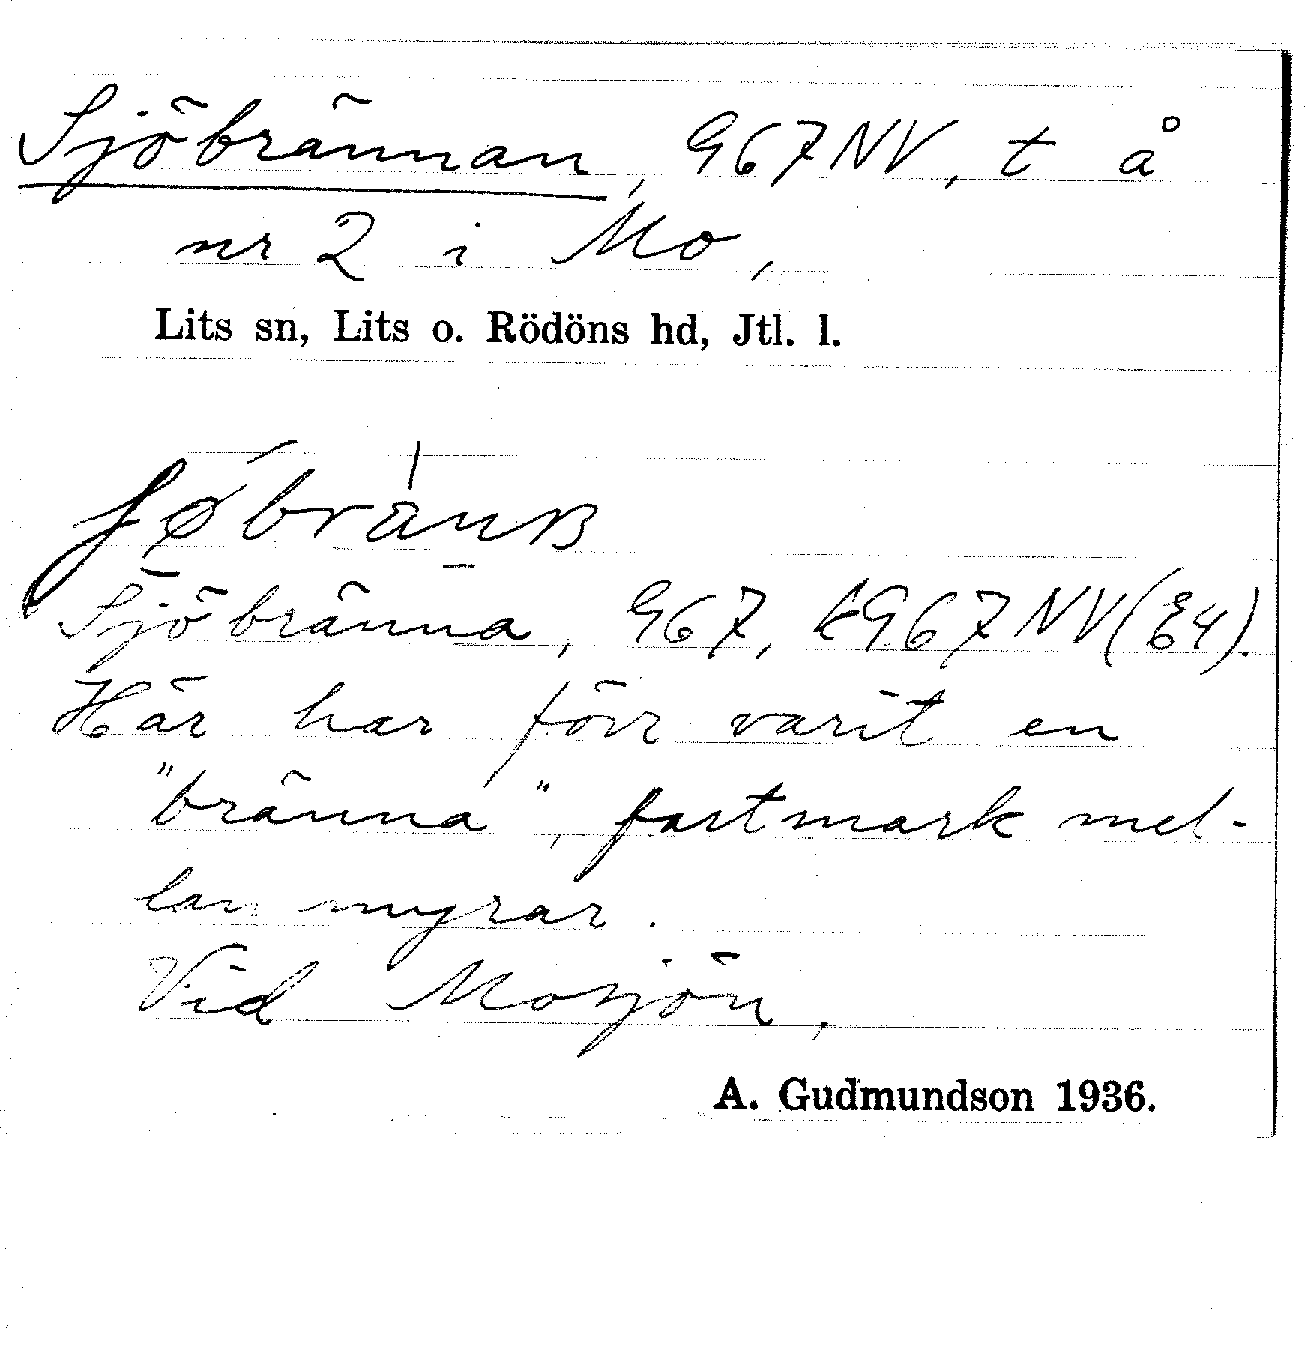 Sjöbrännan, 967 NV, t å
nr 2 i Mo,
Lits sn, Lits o. Rödöns hd, Jtl. l.
Sjöbränna, 967, t967 NV (E4).
Här har förr varit en
"bränna", fastmark mel-
lan myrar.
Vid Mosjön,
A. Gudmundson 1936.